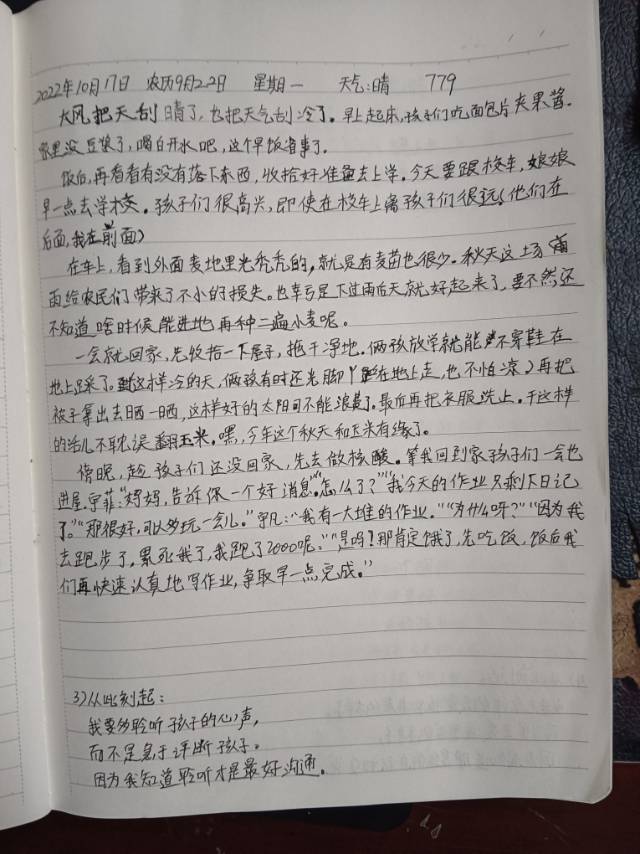 2022年10月17日 农历9月22日 星期一 天气:晴 779
大风把天刮晴了,也把天气刮冷了。早上起床,孩子们吃面包片夹果酱。
家里没豆浆了,喝白开水吧,这个早饭省事了。
饭后,再看看有没有落下东西,收拾好准备去上学。今天要跟校车,娘娘
早一点去学校。孩子们很高兴,即使在校车上离孩子们很远(他们在
后面,我在前面)
在车上,看到外面麦地里光秃秃的,就是有麦苗也很少。秋天这场雨
给农民们带来了不小的损失。也幸亏是下过雨后天就好起来了,要不然还
不知道啥时候能进地再种二遍小麦呢。
一会就回家,先收拾一下屋子,拖干净地。俩孩放学就能不穿鞋在
地上踩了。这样冷的天,俩孩有时还光脚丫在地上走,也不怕凉)再把
被子拿出去晒一晒,这样好的太阳可不能浪费了。最后再把衣服洗上。干这样
的活儿不耽误翻玉米。嘿,今年这个秋天和玉米有缘了。
傍晚,趁孩子们还没回家,先去做核酸。等我回到家孩子们一会也
进屋。宁菲:“妈妈,告诉你一个好消息”“怎么了?”“我今天的作业只剩下日记
了。”“那很好,可以多玩一会儿。”宁凡:“我有一大堆的作业。”“为什么呀?”“因为我
去跑步了,累死我了,我跑了2000呢。”“是吗?那肯定饿了,先吃饭,饭后我
们再快速认真地写作业,争取早一点完成。”
3)从此刻起:
我要多聆听孩子的心声,
而不是急于评断孩子。
因为我知道聆听才是最好沟通。